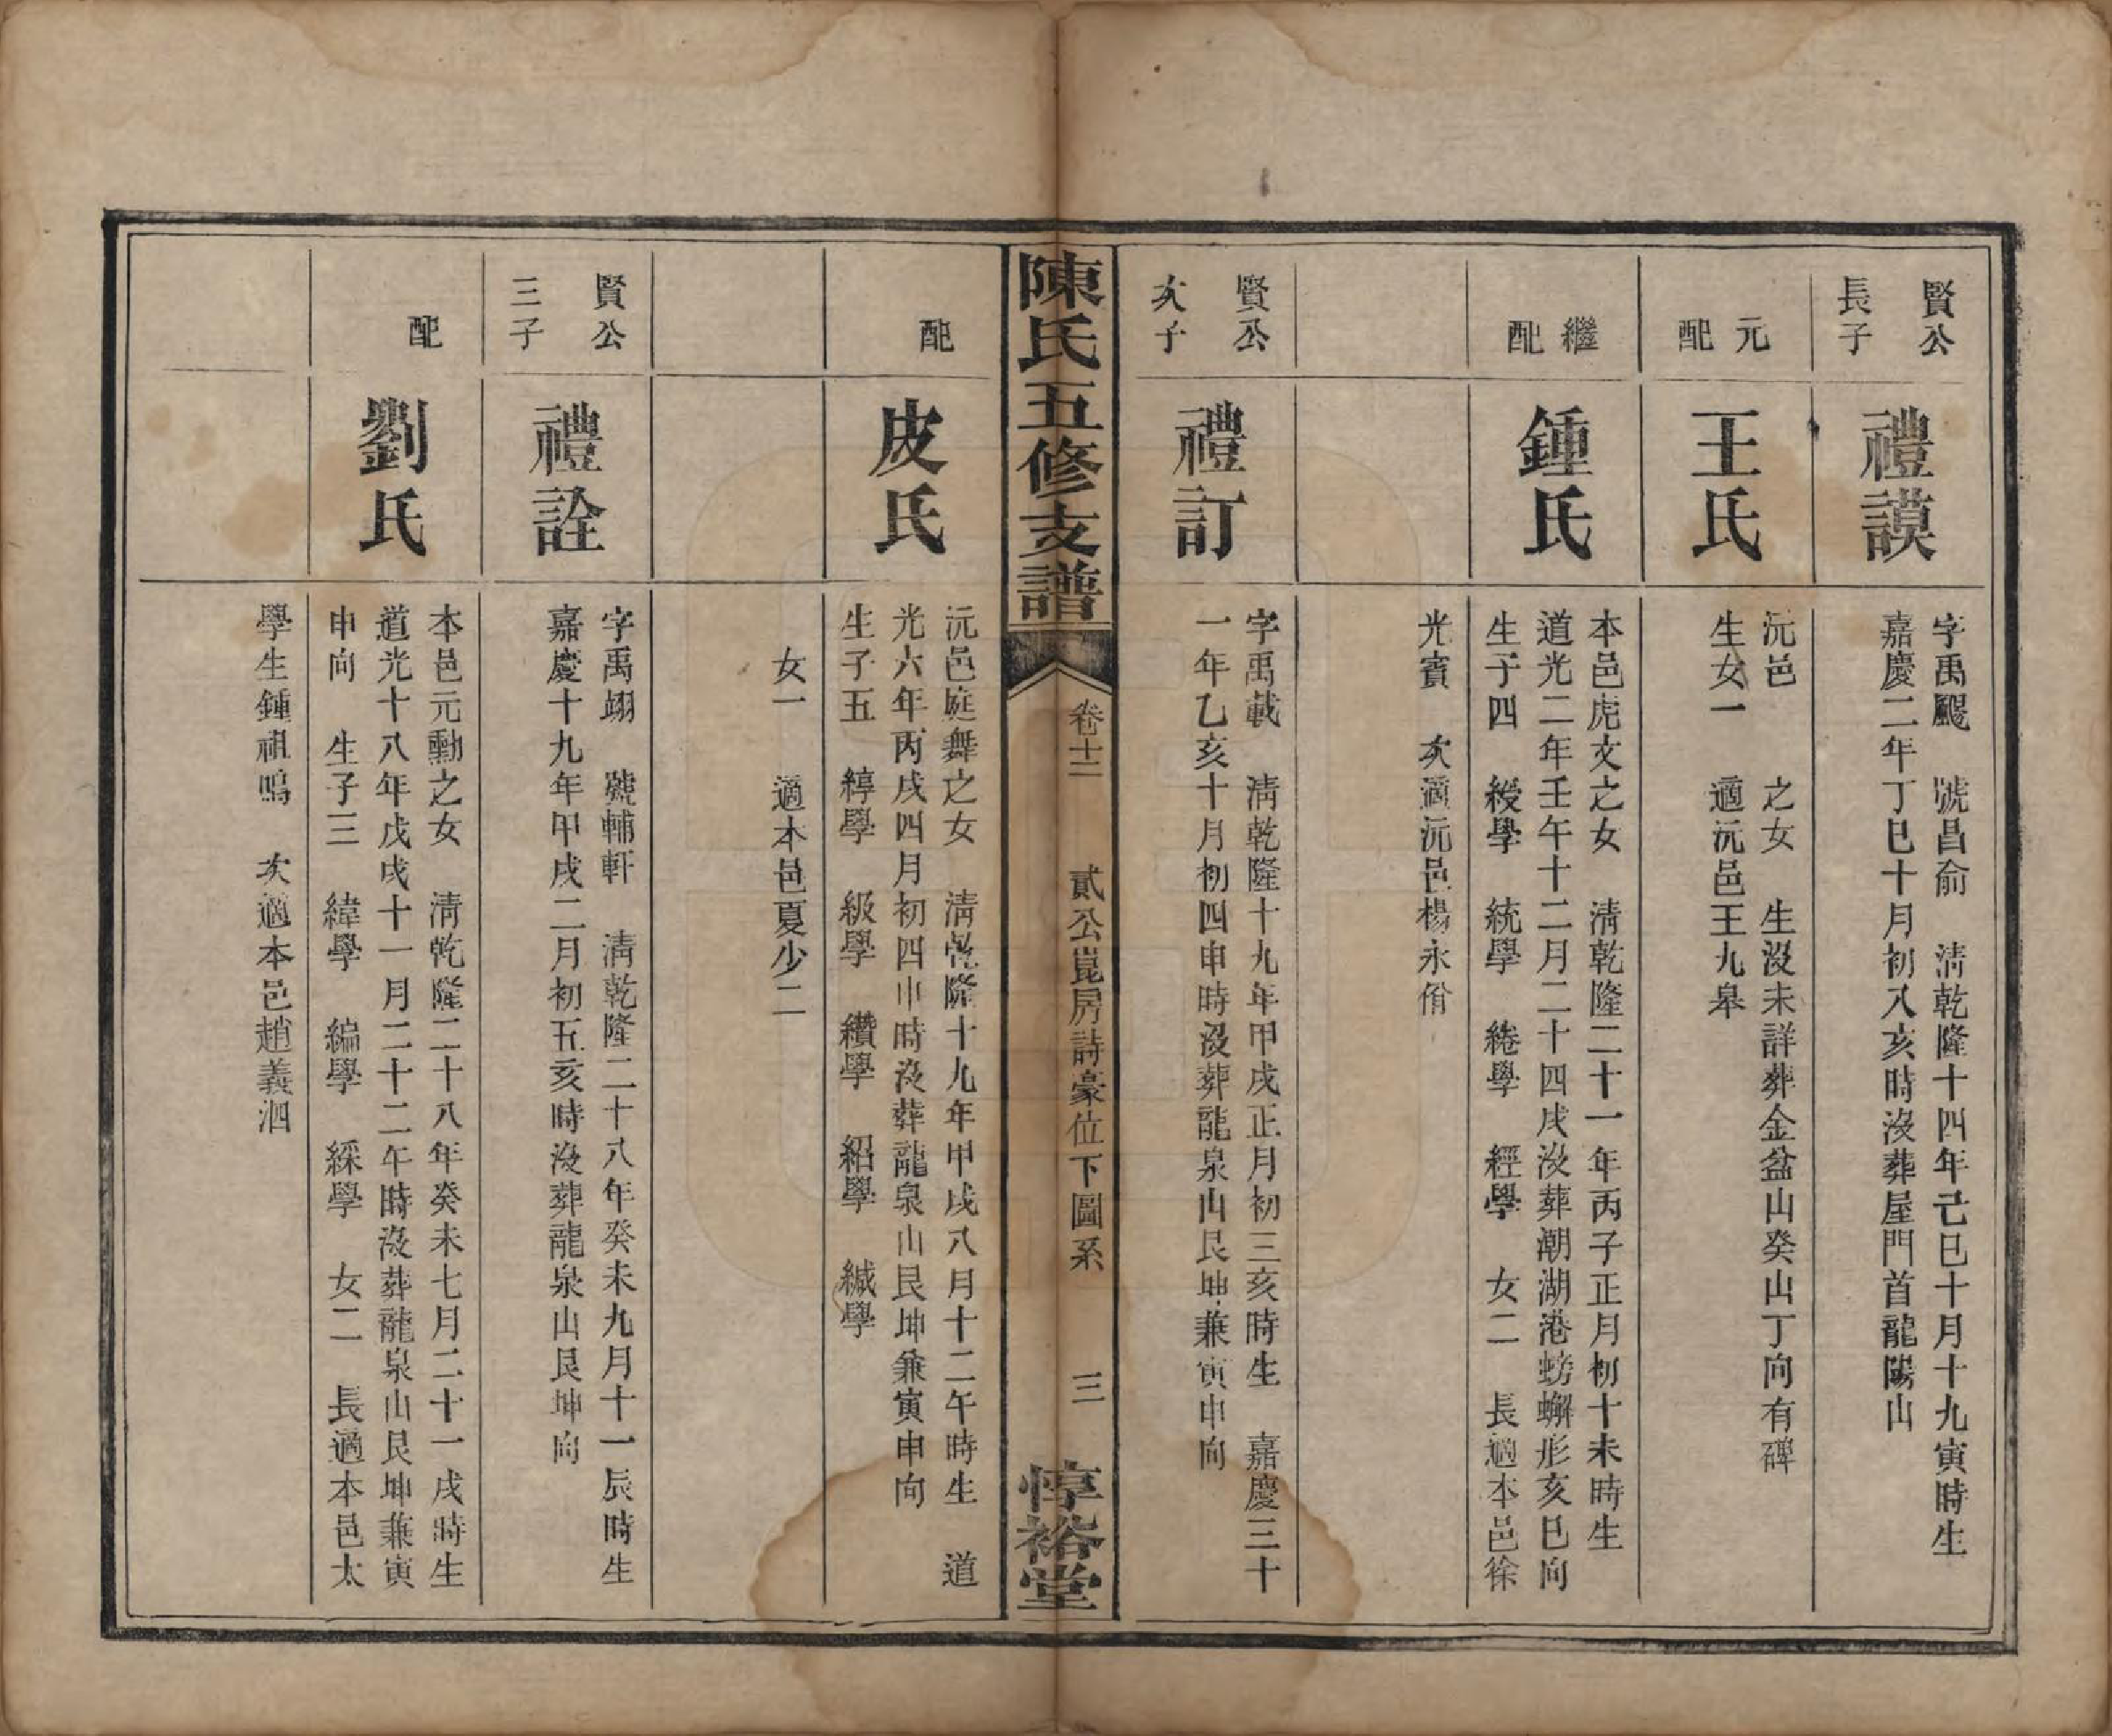 賢公
長子
禮謨
字禹颺　號昌俞　清乾隆十四年己巳十月十九寅時生
嘉慶二年丁巳十月初八亥時沒葬屋門首龍陽山
元配
王氏
沅邑　之女　生沒未詳葬金盆山癸山丁向有碑
生女一　適沅邑王九皋
繼配
鍾氏
本邑虎文之女　清乾隆二十一年丙子正月初十未時生
道光二年壬午十二月二十四戌沒葬潮湖港螃蠏形亥巳向
生子四　綬學　統學　綣學　經學　女二　長適本邑徐
光賓　次適沅邑楊永脩
賢公
次子
禮訂
字禹載　清乾隆十九年甲戌正月初三亥時生　嘉慶三十
一年乙亥十月初四申時沒葬龍泉山艮坤兼寅申向
陳氏五修支譜
卷十二
貳公崑房詩豪位下圖系
三
惇裕堂
配
皮氏
沅邑庭舞之女　清乾隆十九年甲戌八月十二午時生　道
光六年丙戌四月初四申時沒葬龍泉山艮坤兼寅申向
生子五　綧學　級學　纘學　紹學　緘學
女一　適本邑夏少二
賢公
三子
禮詮
字禹翊　號輔軒　清乾隆二十八年癸未九月十一辰時生
嘉慶十九年甲戌二月初五亥時沒葬龍泉山艮坤向
配
劉氏
本邑元勳之女　清乾隆二十八年癸未七月二十一戌時生
道光十八年戊戌十一月二十二午時沒葬龍泉山艮坤兼寅
申向　生子三　緯學　編學　綵學　女二　長適本邑太
學生鍾祖鳴　次適本邑趙義泗